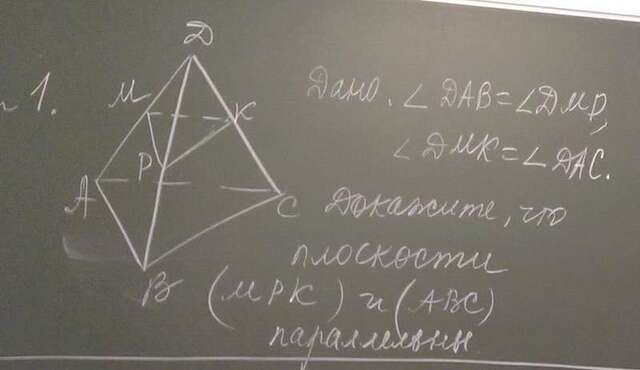 1.
Д
М
К
Р
А
С
В
Дано. ∠ DAB = ∠ DMP,
∠ DMK = ∠ DAC.
Докажите, что
плоскости
(MPK) и (ABC)
параллельны